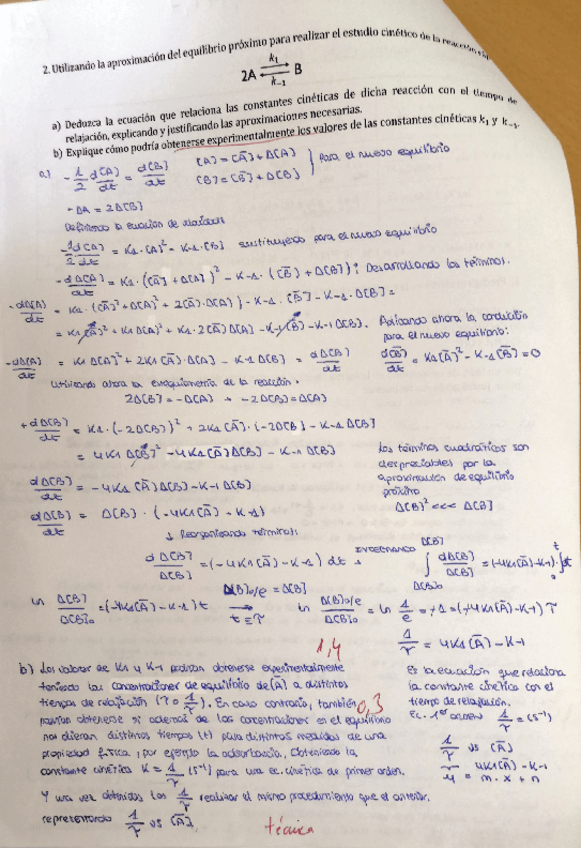 2. Utilizando la aproximación del equilibrio próximo para realizar el estudio cinético de la reacción
2A ⇌ B
k₁
k₋₁
a) Deduzca la ecuación que relaciona las constantes cinéticas de dicha reacción con el tiempo de
relajación, explicando y justificando las aproximaciones necesarias.
b) Explique cómo podría obtenerse experimentalmente los valores de las constantes cinéticas k₁ y k₋₁.
a) -1/2 d[A]/dt = d[B]/dt
[A] = [Ā] + Δ[A]
[B] = [B̄] + Δ[B]
para el nuevo equilibrio
-ΔA = 2Δ[B]
Definiendo la ecuación de velocidad
-1/2 d[A]/dt = K1·[A]² - K-1·[B] sustituyendo para el nuevo equilibrio
-dΔ[A]/dt = K1·([Ā] + Δ[A])² - K-1·([B̄] + Δ[B]); Desarrollando los términos.
-dΔ[A]/dt = K1·([Ā]² + Δ[A]² + 2[Ā]·Δ[A]) - K-1·[B̄] - K-1·Δ[B] =
= K1[Ā]² + K1Δ[A]² + K1·2[Ā]Δ[A] - K-1[B̄] - K-1Δ[B]. Aplicando ahora la condición
para el nuevo equilibrio:
-dΔ[A]/dt = K1Δ[A]² + 2K1[Ā]·Δ[A] - K-1Δ[B] = dΔ[B]/dt
d[B̄]/dt = K1[Ā]² - K-1[B̄] = 0
Utilizando ahora la estequiometría de la reacción.
2Δ[B] = -Δ[A] → -2Δ[B] = Δ[A]
+dΔ[B]/dt = K1·(-2Δ[B])² + 2K1[Ā]·(-2Δ[B]) - K-1Δ[B]
= 4K1Δ[B]² - 4K1[Ā]Δ[B] - K-1Δ[B]
Los términos cuadráticos son
despreciables por la
aproximación de equilibrio
próximo
Δ[B]² <<< Δ[B]
dΔ[B]/dt = -4K1[Ā]Δ[B] - K-1Δ[B]
dΔ[B]/dt = Δ[B]·(-4K1[Ā] - K-1)
↓ Reorganizando términos
dΔ[B]/Δ[B] = (-4K1[Ā] - K-1) dt → Integrando ∫ Δ[B]₀ Δ[B] dΔ[B]/Δ[B] = (-4K1[Ā] - K-1)·∫ 0 t dt
ln Δ[B]/Δ[B]₀ = (-4K1[Ā] - K-1)t
Δ[B]₀/e = Δ[B]
→
t = τ
ln Δ[B]₀/e / Δ[B]₀ = ln 1/e = -1 = (-4K1[Ā] - K-1)τ
1/τ = 4K1[Ā] - K-1
1,4
b) Los valores de K1 y K-1 podrían obtenerse experimentalmente
teniendo las concentraciones de equilibrio de [Ā] a distintos
tiempos de relajación (τ o 1/τ). En caso contrario, también
0,3
podrían obtenerse si además de las concentraciones en el equilibrio
nos dieran distintos tiempos (t) para distintas medidas de una
propiedad física, por ejemplo la absorbancia. Obteniendo la
constante cinética K = 1/τ (s⁻¹) para una ec. cinética de primer orden.
Y una vez obtenidos los 1/τ realizar el mismo procedimiento que el anterior,
representando 1/τ vs [Ā].
técnica
Es la ecuación que relaciona
la constante cinética con el
tiempo de relajación.
Ec. 1er orden 1/τ = (s⁻¹)
1/τ vs [Ā]
1/τ = 4K1[Ā] - K-1
y = m·x + n